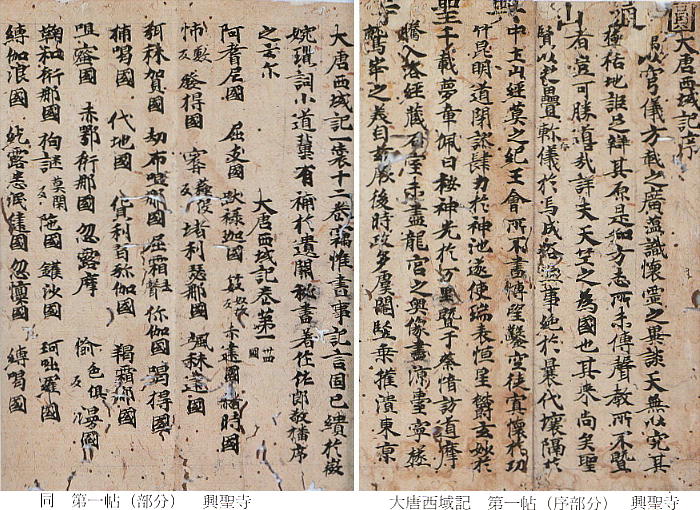 大唐西域記序
以穹儀方載之廣蘊識懷靈之異談天無以究其
括地詎足辯其原是知方志所未傳聲教所不曁
者豈可勝道哉詳夫天竺之為國也其来尚矣聖
賢以之疊軫儀於焉成俗然事絕於曩代壤隔於
中土山經莫之紀王會所不書博望鑿空徒寘懷於功
竹昆明道閉謬肆力於神池遂使瑞表恒星欝玄妙於
千載夢彰佩日秘神光於万里暨于蔡愔訪道摩
騰入洛經藏石室未盡龍宮之奥像畫涼臺寧極
鷲峯之美自茲厥後時政多虞閹竪乗摧潰東涼
大唐西域記一袠十二卷竊惟書事記言固已緝於微
婉瑣詞小道冀有補於遺闕秘書著作佐郎敬播序
之云尒
大唐西域記卷第一 卅四國
阿耆尼國 屈支國 跋禄迦國 赤建國 赭時國
國 窣堵利瑟那國 颯秣建國
弭秣賀國 劫布呾那國 屈霜你伽國 喝國
捕喝國 代地國 貨利弥伽國 羯霜那國
呾蜜國 赤鄂衍那國 忽露摩 愉漫國
鞠和衍那國 鑊沙國 珂咄羅國
縛伽浪國 紇露悉泯健國 忽懍國 縛喝國
同 第一帖（部分） 興聖寺
大唐西域記 第一帖（序部分） 興聖寺